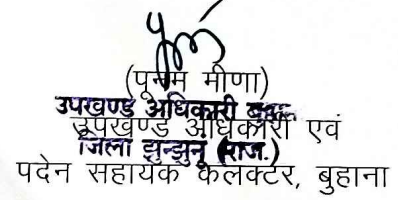 (पूनम मीणा)
उपखण्ड अधिकारी
उपखण्ड अधिकारी एवं
जिला झुन्झुनू (राज.)
पदेन सहायक कलक्टर, बुहाना